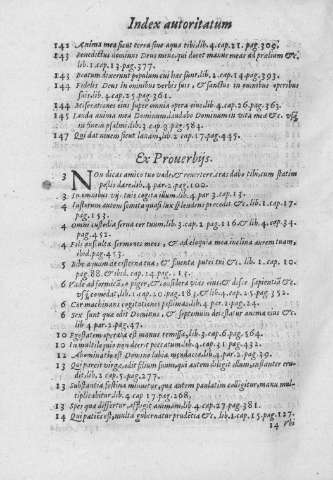 Index autoritatum
142 Anima mea sicut terra sine aqua tibi. lib. 4. cap. 21. pag. 309.
143 Benedictus dominus Deus meus, qui docet manus meas ad prælium &c.
lib. 1. cap. 13. pag. 377.
143 Beatum dixerunt populum cui hæc sunt, lib. 1. cap. 14. pag. 393.
144 Fidelis Deus in omnibus verbis suis, & sanctus in omnibus operibus
suis. lib. 4. cap. 25. pag. 361.
144 Miserationes eius super omnia opera eius lib. 4. cap. 26. pag. 363.
145 Lauda anima mea Dominum, laudabo Dominum in vita mea &c.
in finem psalmi. lib. 3. cap. 9. pag. 584.
147 Qui dat niuem sicut lanam, lib. 2. cap. 17. pag. 435.
Ex Prouerbijs.
3 NOn dicas amico tuo vade, & reuertere, cras dabo tibi, cum statim
possis dare. lib. 4. par. 2. pag. 100.
3 In omnibus vijs tuis cogita illum. lib. 4. par. 3. cap. 13.
4 Iustorum autem semita quasi lux splendens procedit &c. lib. 1. cap. 17.
pag. 153.
4 Omni custodia serua cor tuum, lib. 3. cap. 2. pag. 116. & lib. 4. cap. 34.
pag. 452.
4 Fili ausculta sermones meos, & ad eloquia mea inclina aurem tuam,
ibid. pag. 453.
5 Bibe aquam de cisterna tua, & fluenta putei tui &c. lib. 1. cap. 10.
pag. 88. & ibid. cap. 14. pag. 115.
6 Vade ad formicam, o piger, & considera vias eius, & disce sapientiã &c.
vsq; comedat, lib. 1. cap. 20. pag. 183. & lib. 4. cap. 25. pag. 352.
6 Cor machinans cogitationes pessimas, lib. 4. par. 1. pag. 24.
6 Sex sunt quæ odit Dominus, & septimum detestatur anima eius &c.
lib. 4. par. 2. pag. 47.
10 Egestatem operata est manus remissa, lib. 3. cap. 6. pag. 564.
10 In multiloquio non deerit peccatum. lib. 4. cap. 31. pag. 432.
12 Abominatio est Domino labia mendacia, lib. 4. par. 2. pag. 39.
13 Qui parcit virgæ, odit filium suum, qui autem diligit illum, instanter eru-
dit. lib. 2. cap. 5. pag. 277.
13 Substantia festina minuetur, quæ autem paulatim colligitur, manu mul-
tiplicabitur. lib. 4. cap. 17. pag. 268.
13 Spes quæ differtur, affligit animam, lib. 4. cap. 27. pag. 381.
14 Qui patiens est, multa gubernatur prudentia &c. lib. 1. cap. 15. pag. 127.
14 Vbi